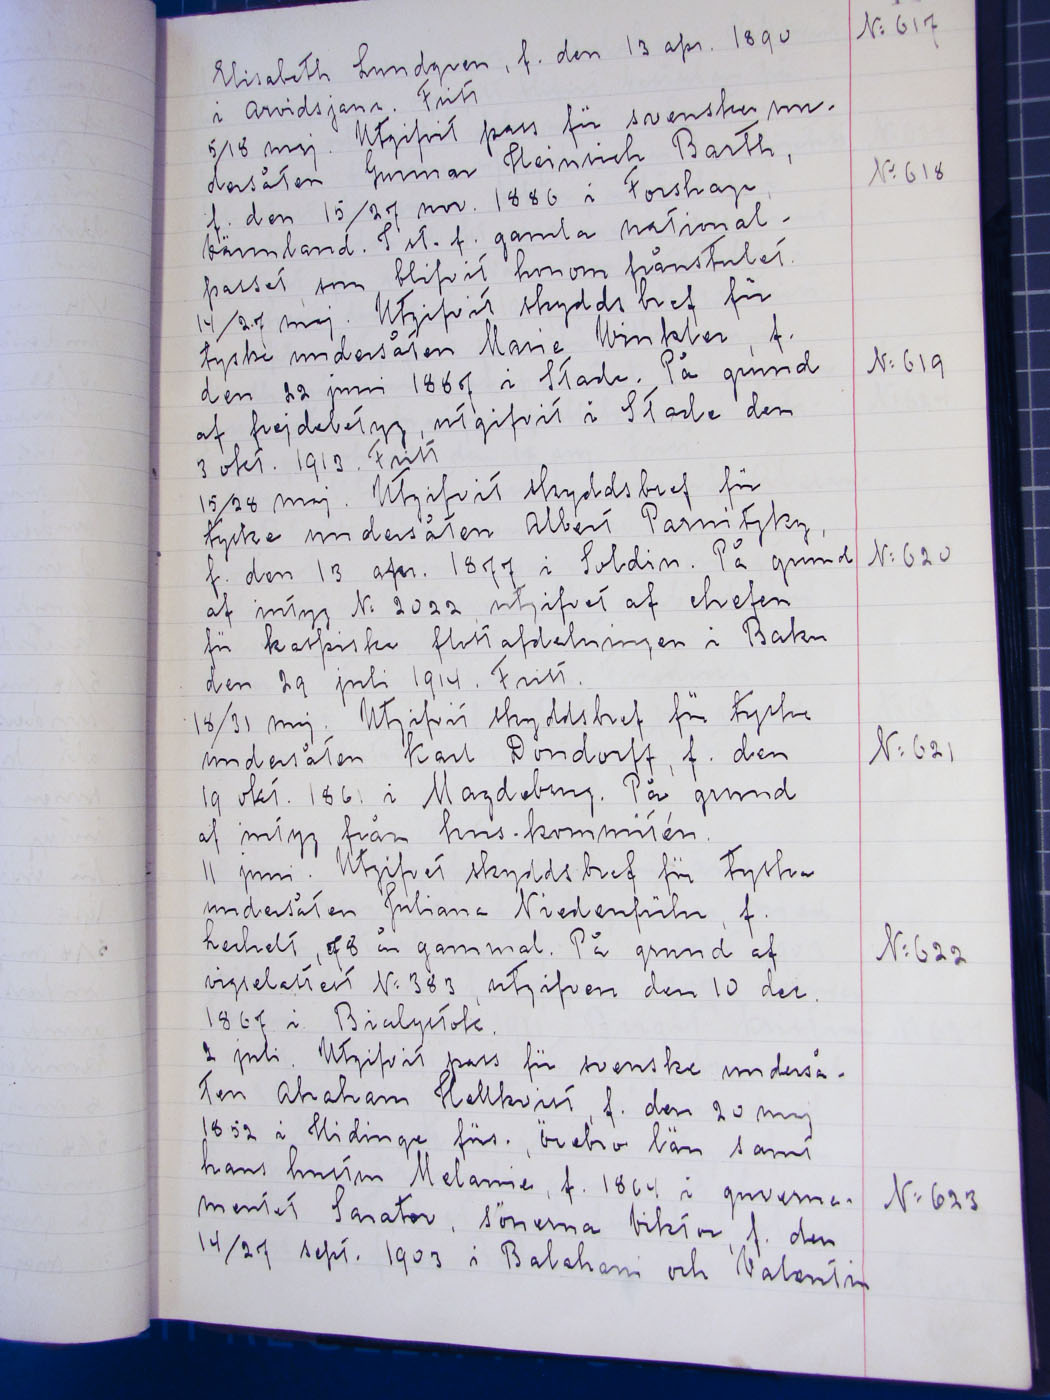 Elisabeth Lundgren, f. den 13 apr. 1890
N: 617
i Arvidsjaur. Fritt
5/18 maj. Utgifvit pass för svenske un-
dersåten Gunnar Heinrich Barth,
N: 618
f. den 15/27 nov. 1886 i Forshaga,
Värmland. I st. f. gamla national-
passet som blifvit honom frånstulet.
14/27 maj. Utgifvit skyddsbref för
tyske undersåten Marie Winkler, f.
N: 619
den 22 juni 1887 i Stade. På grund
af frejdebetyg, utgifvit i Stade den
3 okt. 1913. Fritt
15/28 maj. Utgifvit skyddsbref för
tyske undersåten Albert
f. den 13 apr. 1877 i Soldin. På grund
N: 620
af intyg N: 2022 utgifvet af chefen
för kaspiska flottafdelningen i Baku
den 29 juli 1914. Fritt.
18/31 maj. Utgifvit skyddsbref för tyske
undersåten Karl Dondorff, f. den
N: 621
19 okt. 1861 i Magdeburg. På grund
af intyg från hus-kommitén.
11 juni. Utgifvet skyddsbref för tyska
undersåten Juliana Niedenführ, f.
78 år gammal. På grund af
N: 622
vigselattest N: 383, utgifven den 10 dec.
1867 i Bialystok.
2 juli. Utgifvit pass för svenske underså-
ten Abraham Hellkvist, f. den 20 maj
1852 i Hidinge förs., Örebro län samt
hans hustru Melanie, f. 1864 i guverne-
N: 623
mentet Saratov, sönerna Viktor, f. den
14/27 sept. 1903 i Balahani och Valentin